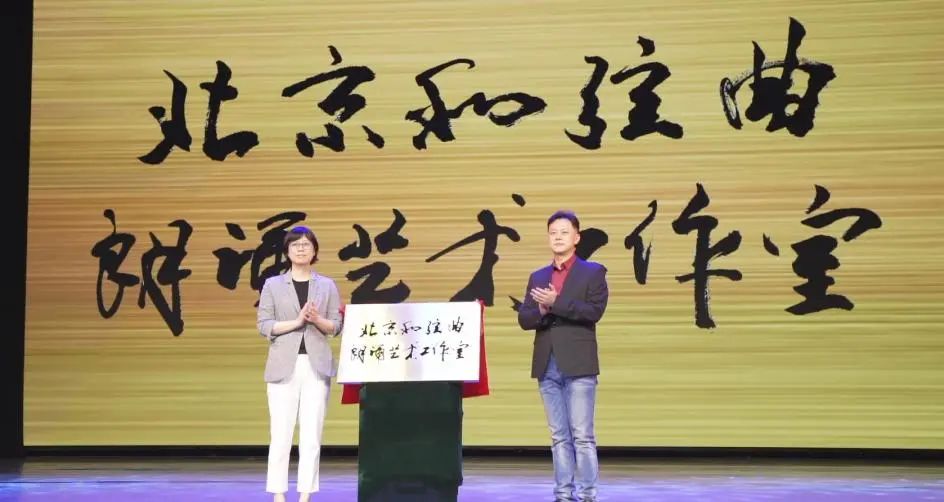 北京和弦曲
朗诵艺术工作室
北京和弦曲
朗诵艺术工作室